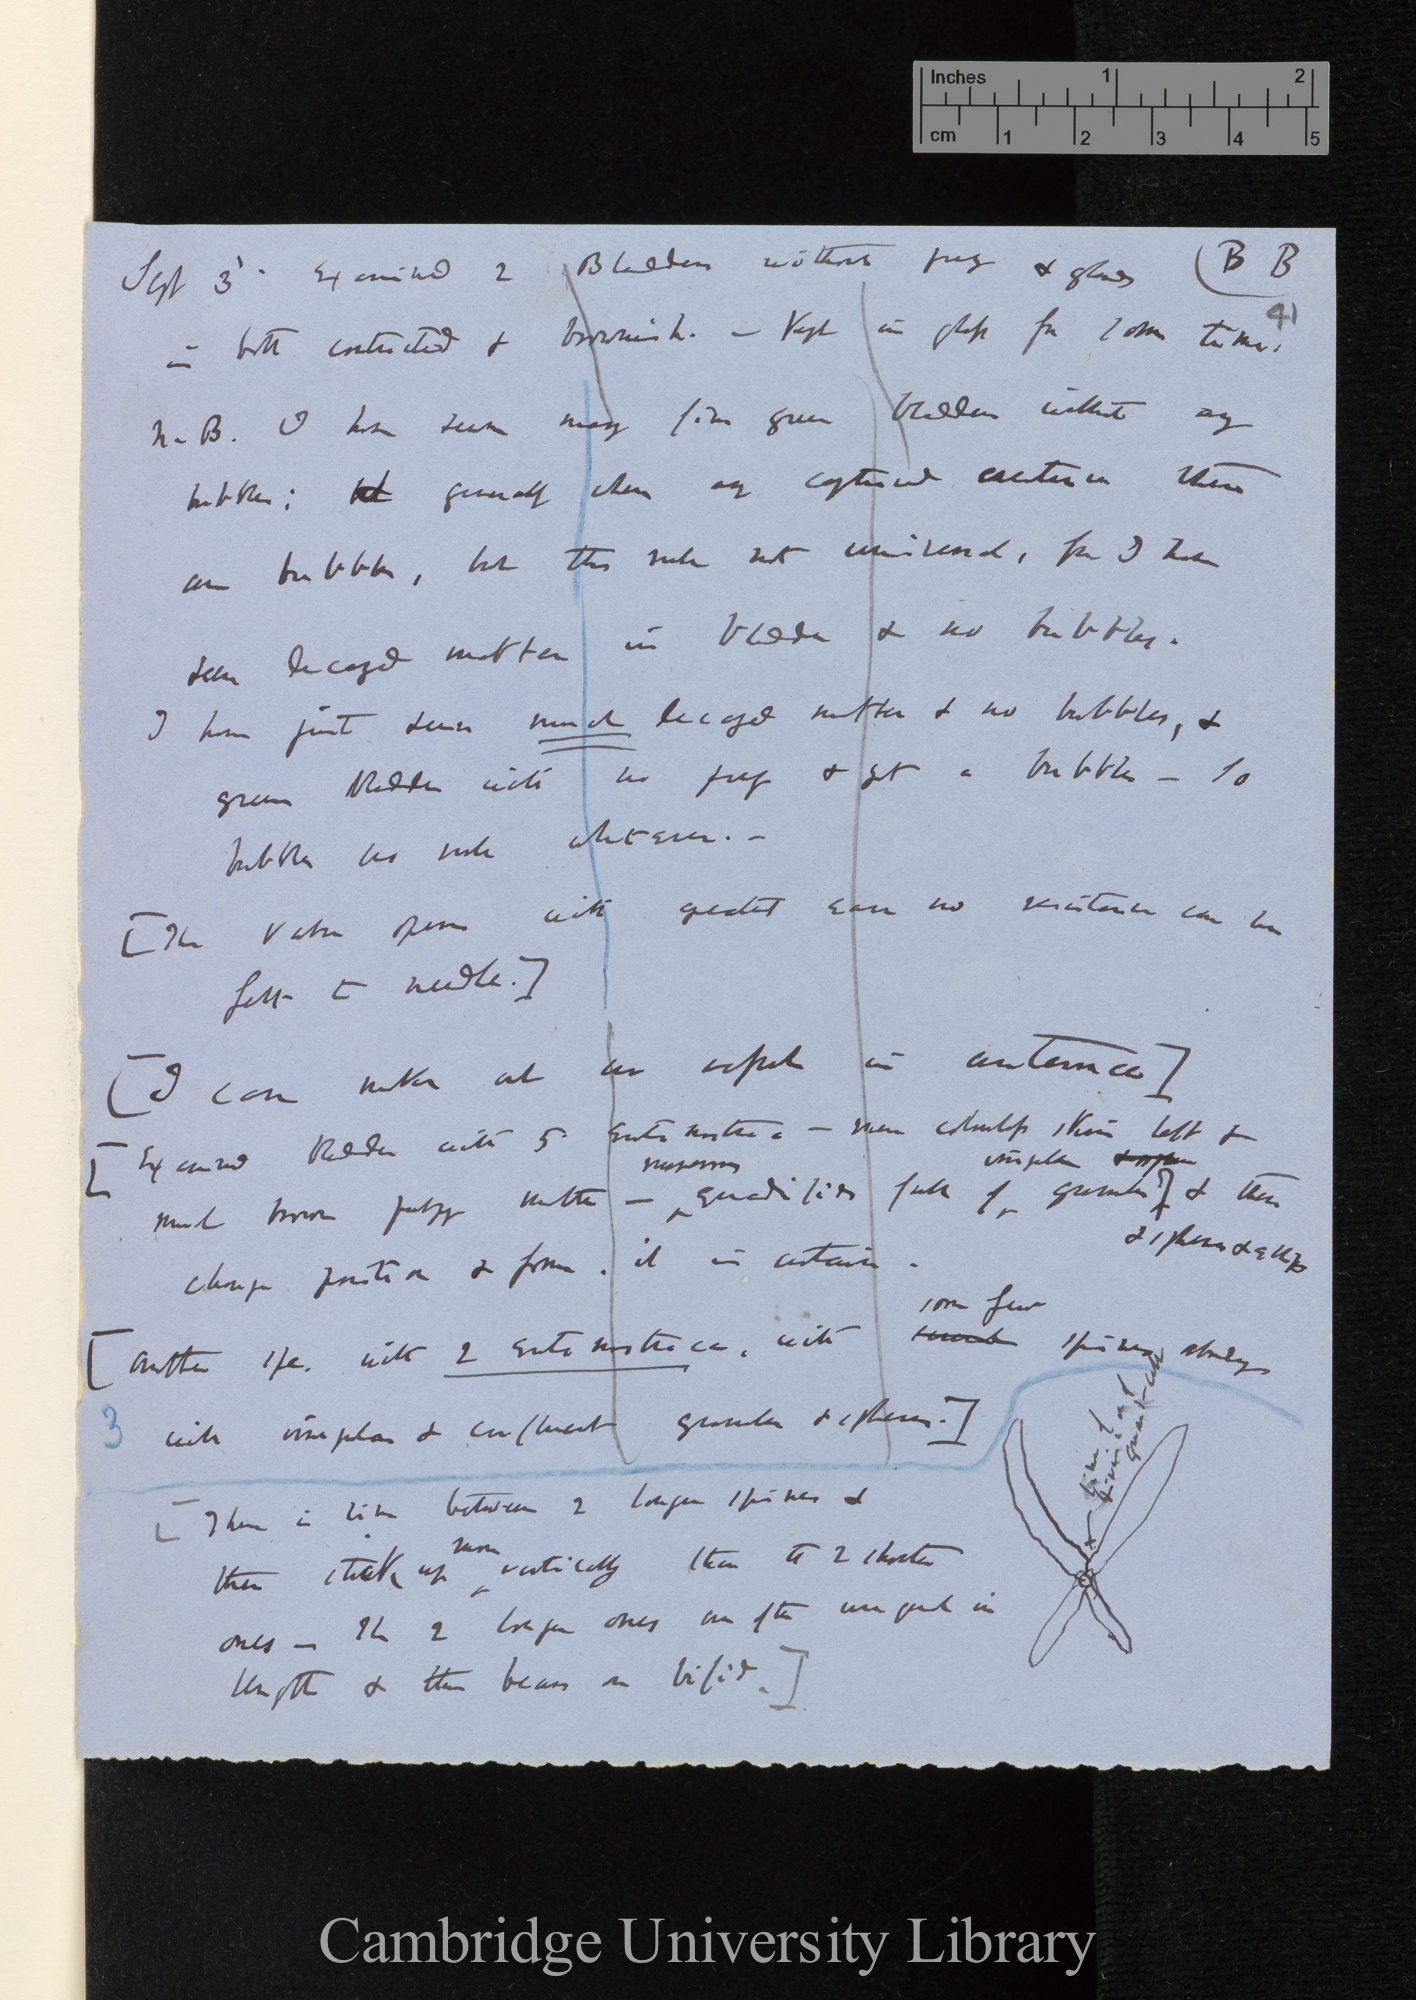 Inches 1 2
cm 1 2 3 4 5
(B B
41
Sept 3. Examined 2 Bladders without prey & glands
in both contracted & brownish. — Kept in glass for some time.
N.B. I have seen many fine green bladders without any
bubbles; generally when any captured there
are bubbles, but this rule not universal, for I have
seen decayed matter in bladder & no bubbles.
I have just seen much decayed matter & no bubbles, &
green bladder with no prey & yet a bubble — So
bubbles no rule whatever. —
[The valve opens with greatest ease no resistance can be
felt to needle.]
[I can make out no in antennae]
[Examined bladder with 5 Entomostraca — mere skins left &
much brown pulpy matter — numerous quadrifids full of simple granules & these
& spheres &
change position & form. it is certain.
[Another spe. with 2 Entomostraca, with some few spines
3 with simple & confluent granules & spheres.]
[There is line between 2 longer spines &
these stick up more vertically than the 2 shorter
ones — The 2 longer ones are often unequal in
length & this beam on bifid.]
Cambridge University Library